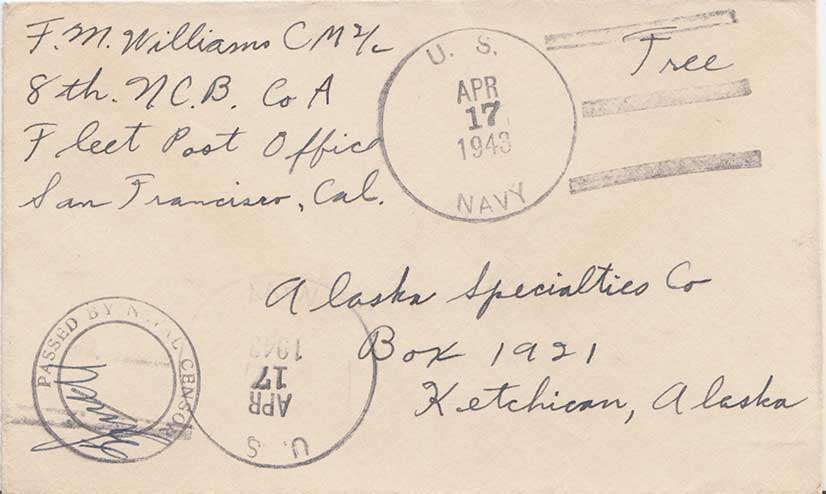 F. M. Williams CM 2/c
8th. N.C.B. Co A
Fleet Post Office
San Francisco, Cal.
U. S.
APR
17
1943
NAVY
Free
Alaska Specialties Co
Box 1921
Ketchican, Alaska
PASSED BY NAVAL CENSOR
U. S
APR
17
1943